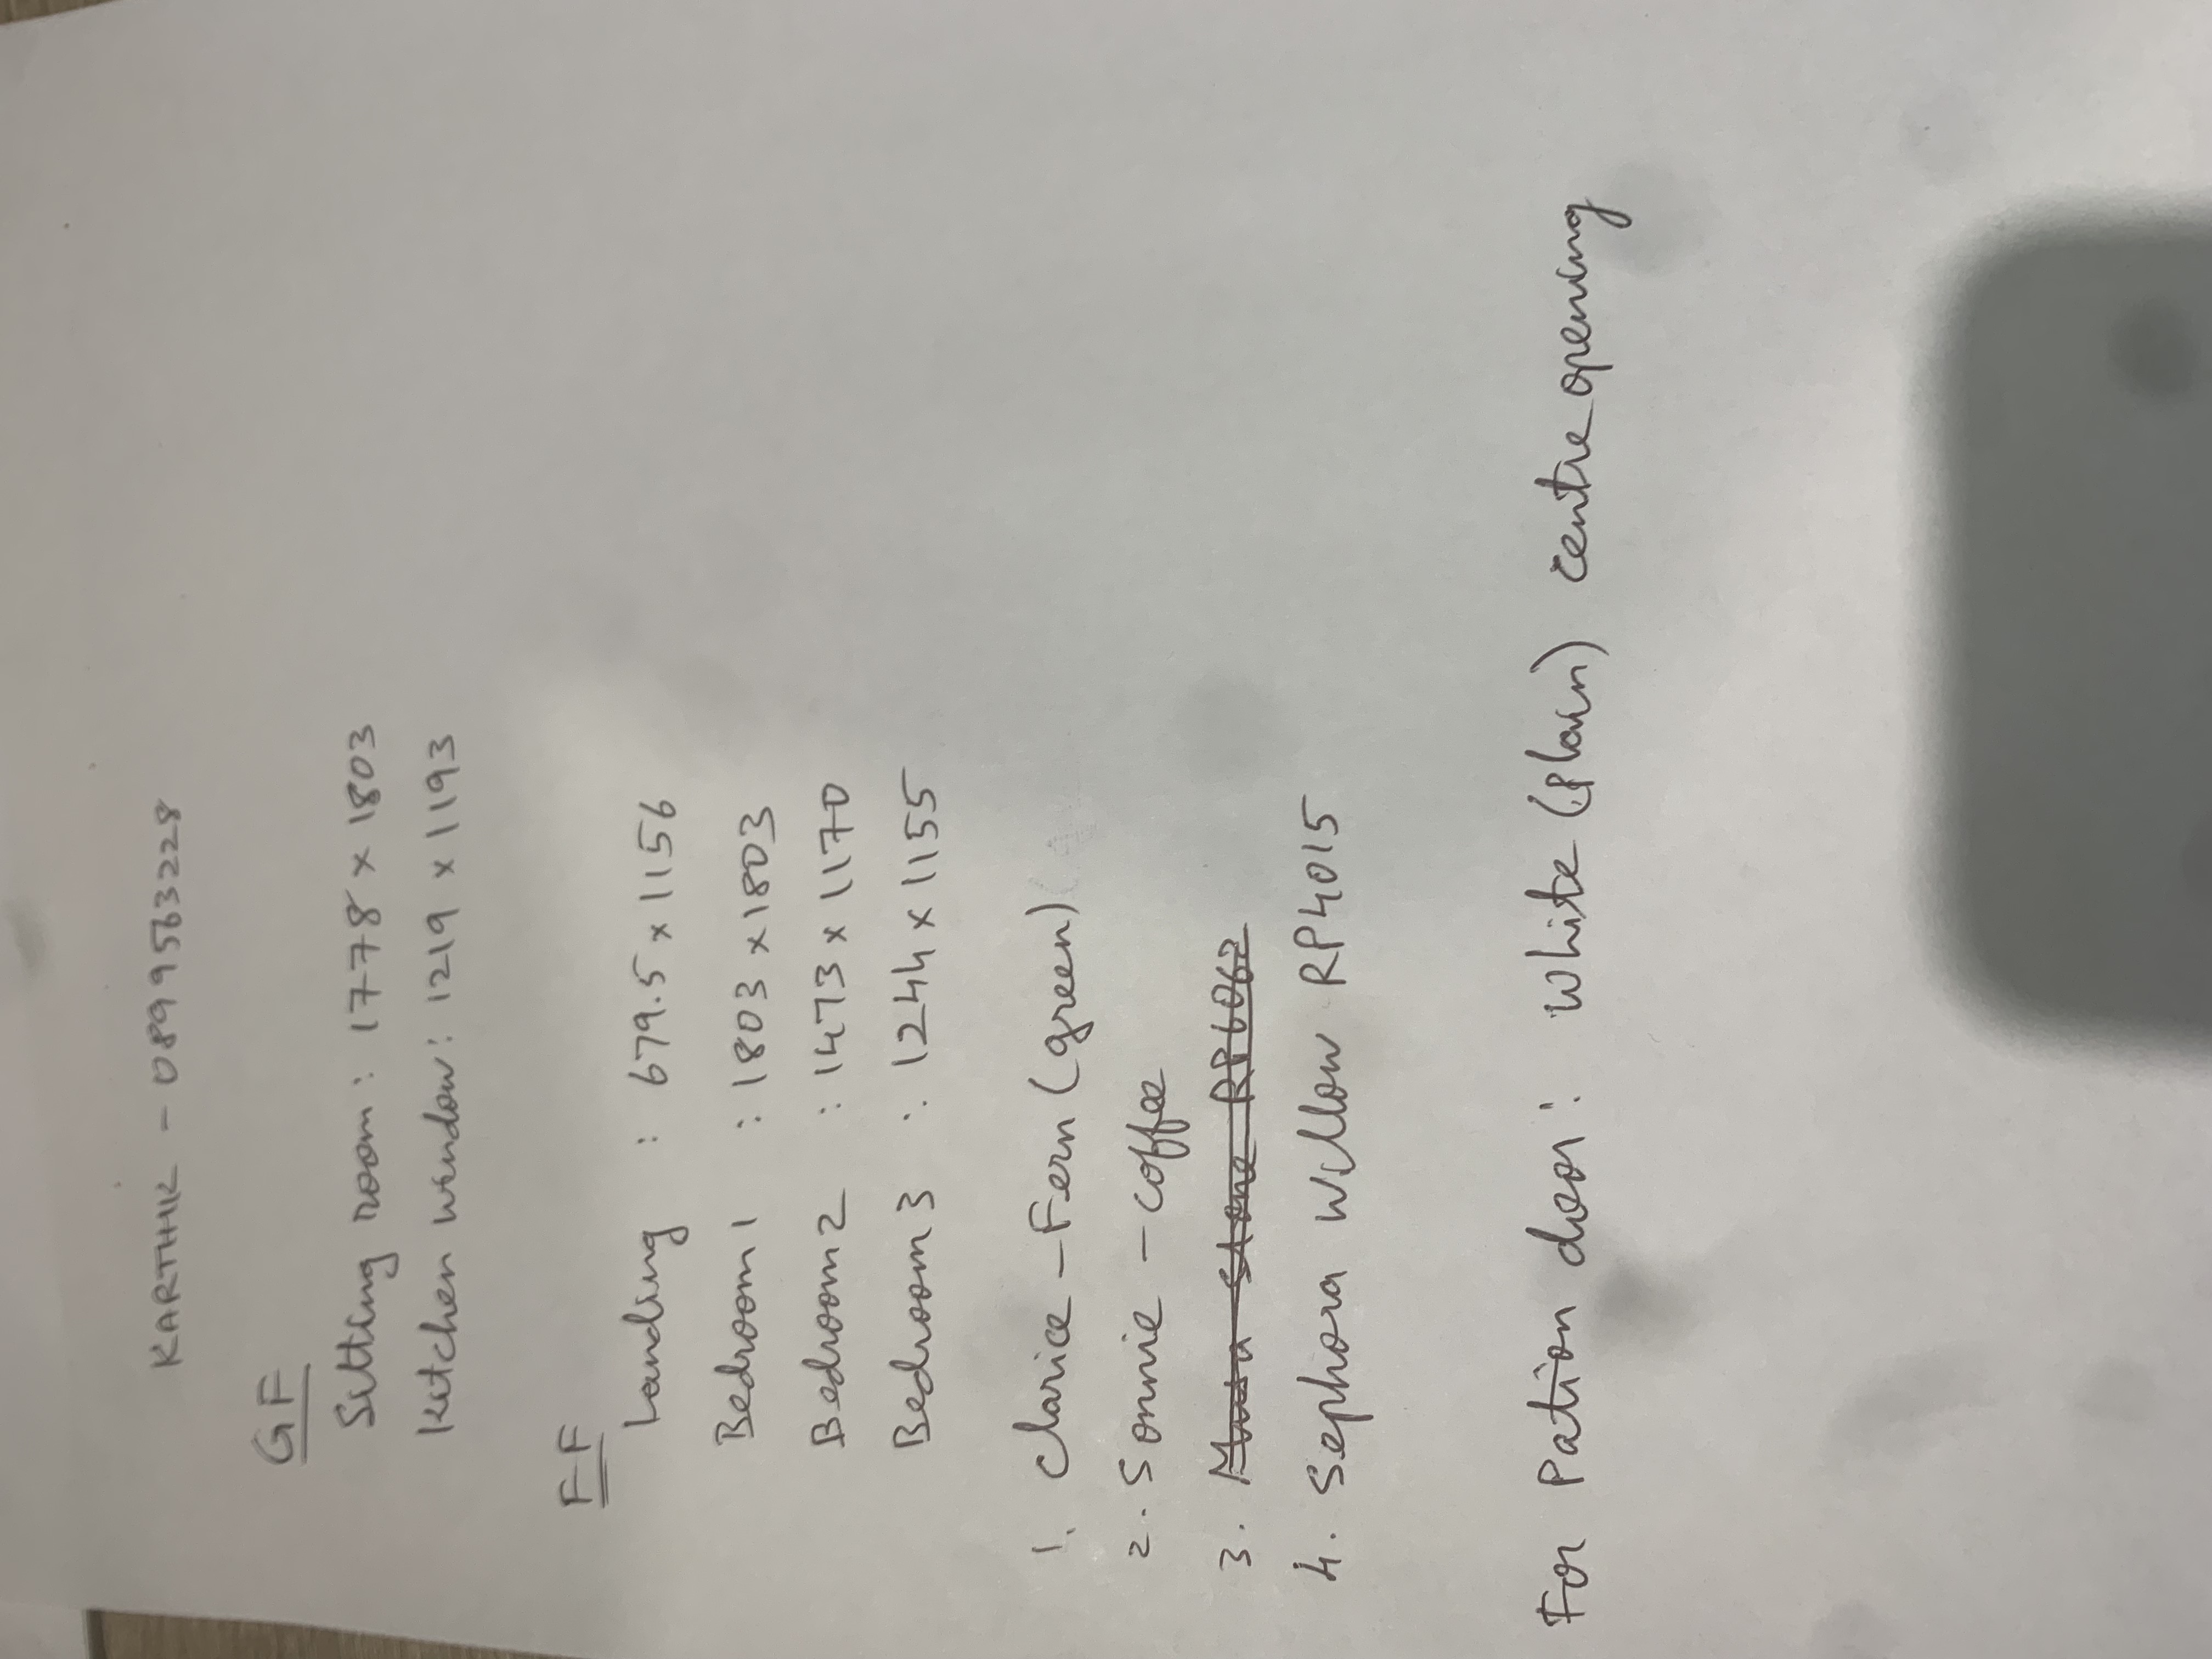 KARTHIK - 0899563228
GF
Sitting room: 1778 x 1803
Kitchen window: 1219 x 1193
FF
Landing : 679.5 x 1156
Bedroom 1 : 1803 x 1803
Bedroom 2 : 1473 x 1170
Bedroom 3 : 1244 x 1155
1. Clarice - Fern (green)
2. Sonnie - coffee
3. Stone RP6062
4. Sephora Willow RP4015
For Pation door: White (plain) centre opening